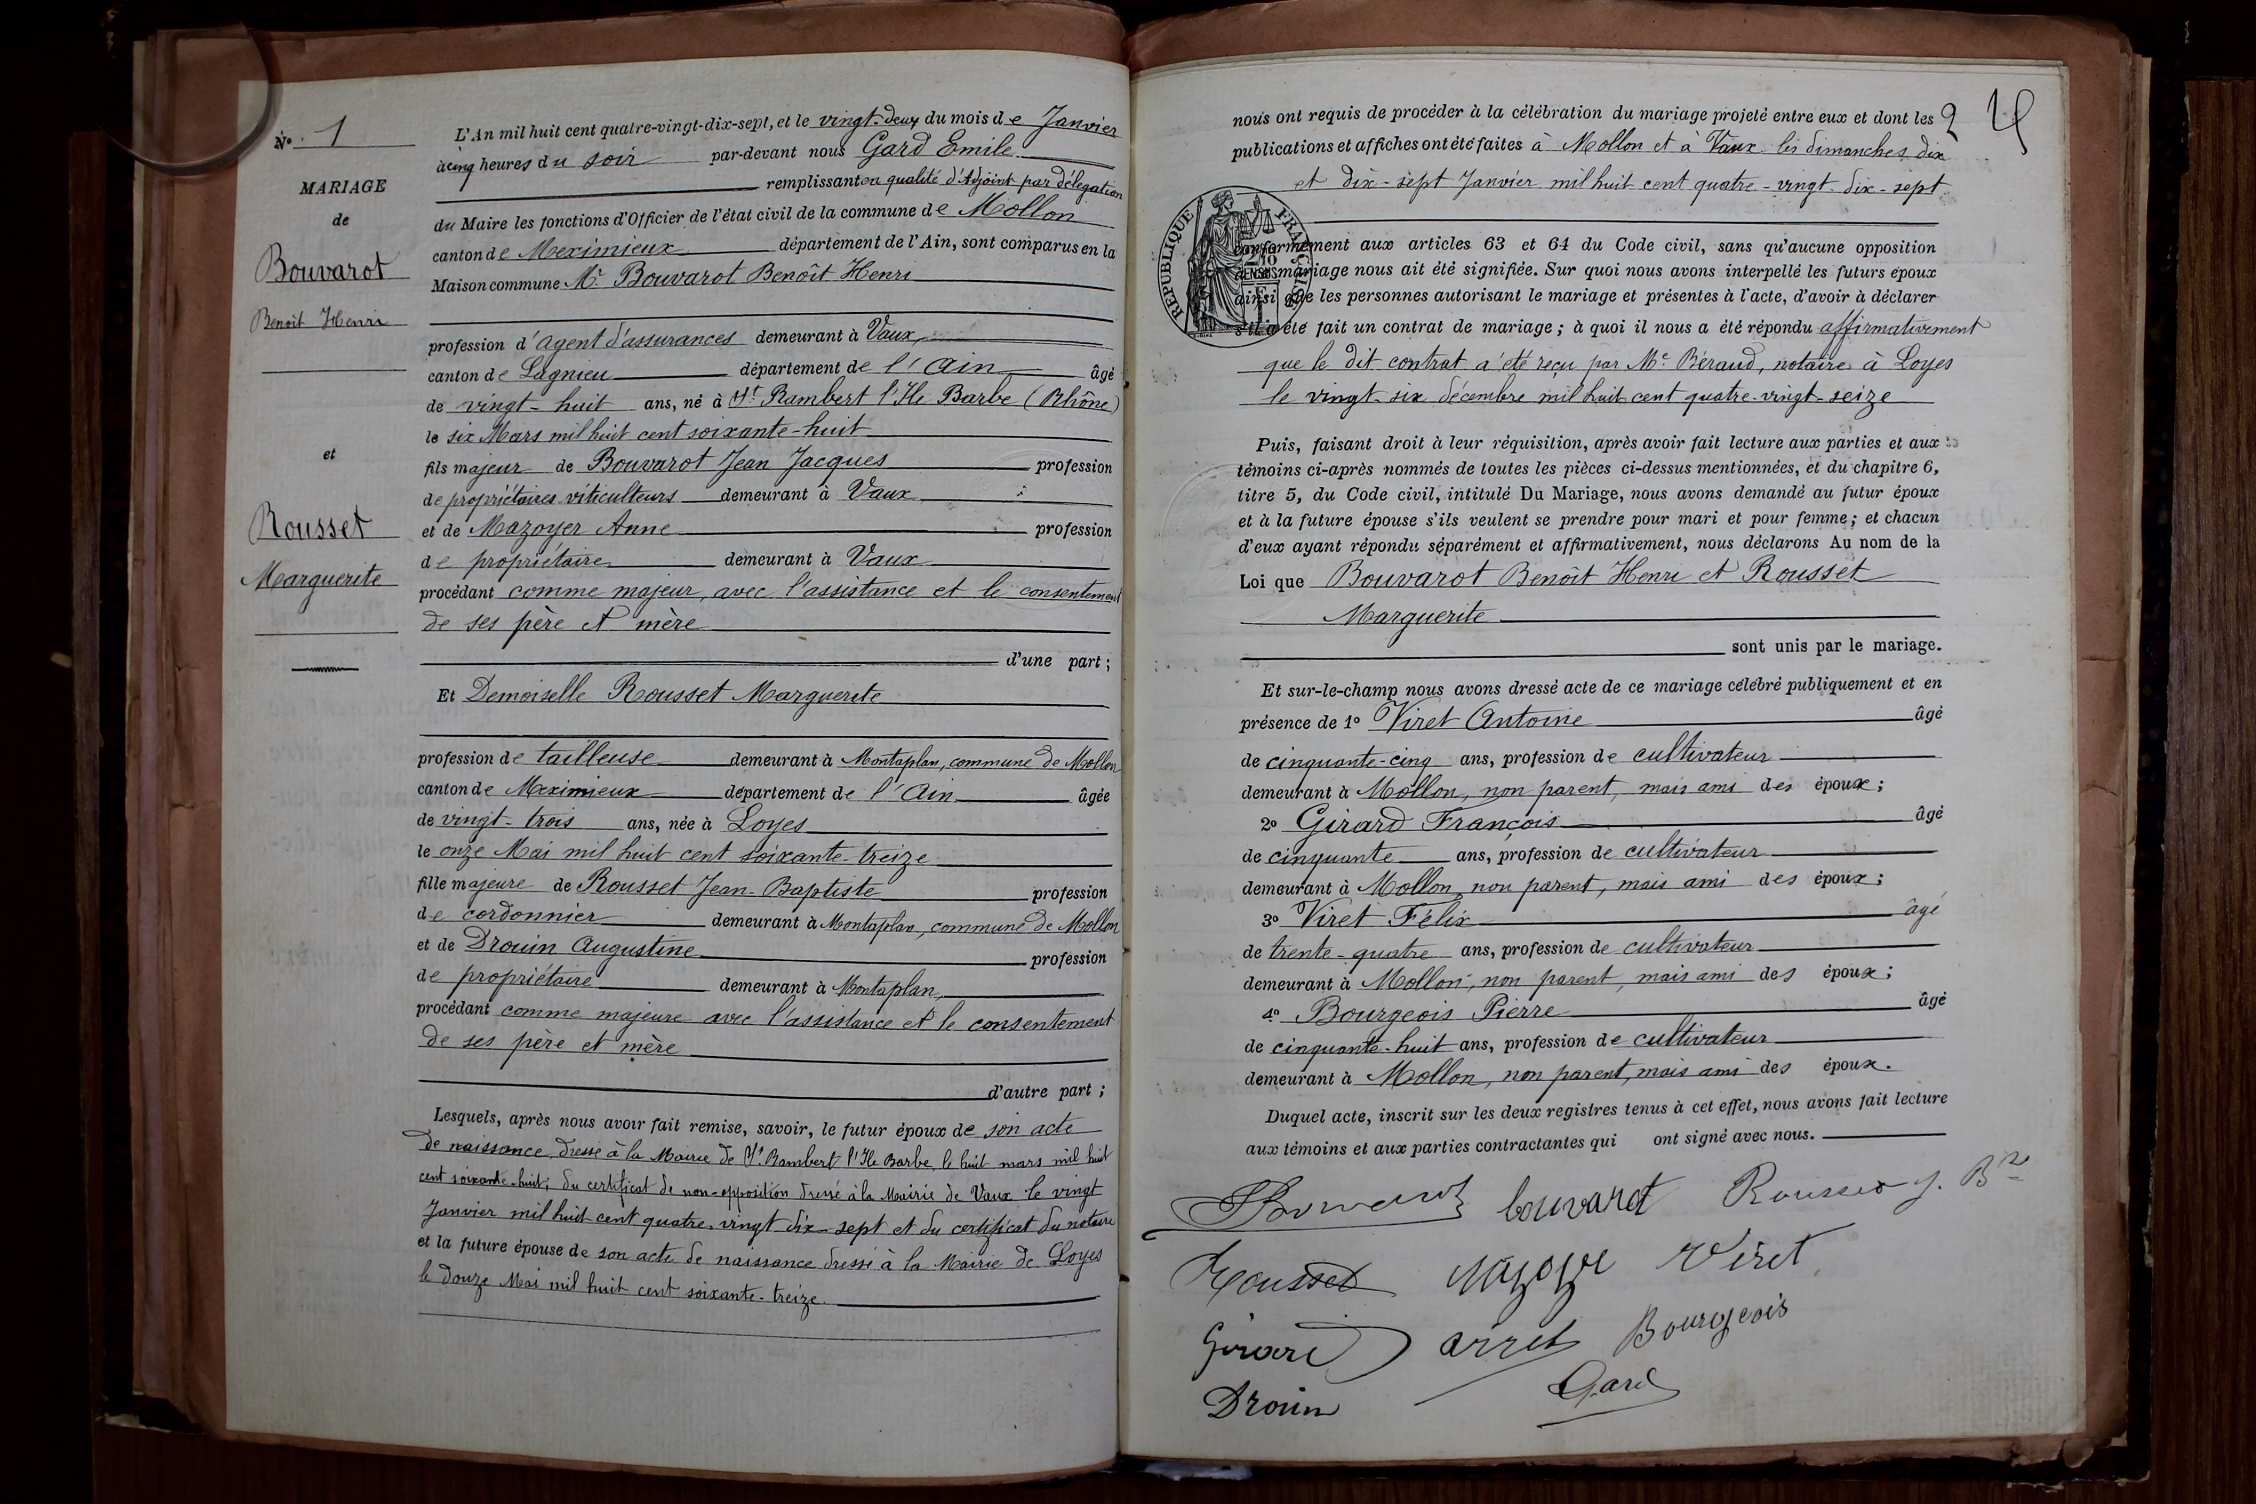 No. 1
MARIAGE
de
Bouvarot
Benoit Henri
et
Rousset
Marguerite
L'An mil huit cent quatre-vingt-dix-sept, et le vingt-deux du mois de Janvier
à cinq heures du soir par-devant nous Gard Emile
remplissant en qualité d'Adjoint par délégation
du Maire les fonctions d'Officier de l'état civil de la commune de Mollon
canton de Meximieux département de l'Ain, sont comparus en la
Maison commune Mr. Bouvarot Benoît Henri
profession d'agent d'assurances demeurant à Vaux,
canton de Lagnieu département de l'Ain âgé
de vingt-huit ans, né à St. Rambert l'Ile Barbe (Rhône)
le six Mars mil huit cent soixante-huit
fils majeur de Bouvarot Jean Jacques profession
de propriétaires viticulteurs demeurant à Vaux
et de Mazoyer Anne profession
de propriétaire demeurant à Vaux
procédant comme majeur, avec l'assistance et le consentement
de ses père et mère
d'une part;
Et Demoiselle Rousset Marguerite
profession de tailleuse demeurant à Montaplan, commune de Mollon
canton de Meximieux département de l'Ain âgée
de vingt-trois ans, née à Loyes
le onze Mai mil huit cent soixante-treize
fille majeure de Rousset Jean-Baptiste profession
de cordonnier demeurant à Montaplan, commune de Mollon
et de Drouin Augustine profession
de propriétaire demeurant à Montaplan,
procédant comme majeure avec l'assistance et le consentement
de ses père et mère
d'autre part;
Lesquels, après nous avoir fait remise, savoir, le futur époux de son acte
de naissance dressé à la Mairie de St Rambert l'Ile Barbe le huit mars mil huit
cent soixante-huit; du certificat de non-opposition dressé à la Mairie de Vaux le vingt
Janvier mil huit cent quatre-vingt dix-sept et du certificat du notaire
et la future épouse de son acte de naissance dressé à la Mairie de Loyes
le douze Mai mil huit cent soixante-treize.
2
nous ont requis de procéder à la célébration du mariage projeté entre eux et dont les
publications et affiches ont été faites à Mollon et à Vaux les dimanches dix
et dix-sept Janvier mil huit cent quatre-vingt dix-sept
REPUBLIQUE FRANÇAISE
conformément aux articles 63 et 64 du Code civil, sans qu'aucune opposition
mariage nous ait été signifiée. Sur quoi nous avons interpellé les futurs époux
ainsi que les personnes autorisant le mariage et présentes à l'acte, d'avoir à déclarer
s'il a été fait un contrat de mariage; à quoi il nous a été répondu affirmativement
que le dit contrat a été reçu par Me. Béraud, notaire à Loyes
le vingt-six décembre mil huit cent quatre-vingt-seize
Puis, faisant droit à leur réquisition, après avoir fait lecture aux parties et aux
témoins ci-après nommés de toutes les pièces ci-dessus mentionnées, et du chapitre 6,
titre 5, du Code civil, intitulé Du Mariage, nous avons demandé au futur époux
et à la future épouse s'ils veulent se prendre pour mari et pour femme; et chacun
d'eux ayant répondu séparément et affirmativement, nous déclarons Au nom de la
Loi que Bouvarot Benoît Henri et Rousset
Marguerite
sont unis par le mariage.
Et sur-le-champ nous avons dressé acte de ce mariage célébré publiquement et en
présence de 1º Viret Antoine âgé
de cinquante-cinq ans, profession de cultivateur
demeurant à Mollon, non parent, mais ami des époux;
2º Girard François âgé
de cinquante ans, profession de cultivateur
demeurant à Mollon, non parent, mais ami des époux;
3º Viret Félix âgé
de trente-quatre ans, profession de cultivateur
demeurant à Mollon, non parent, mais ami des époux;
4º Bourgeois Pierre âgé
de cinquante-huit ans, profession de cultivateur
demeurant à Mollon, non parent, mais ami des époux.
Duquel acte, inscrit sur les deux registres tenus à cet effet, nous avons fait lecture
aux témoins et aux parties contractantes qui ont signé avec nous.
bouvarot
Rousset
Viret
Girard
Bourgeois
Drouin
Gard